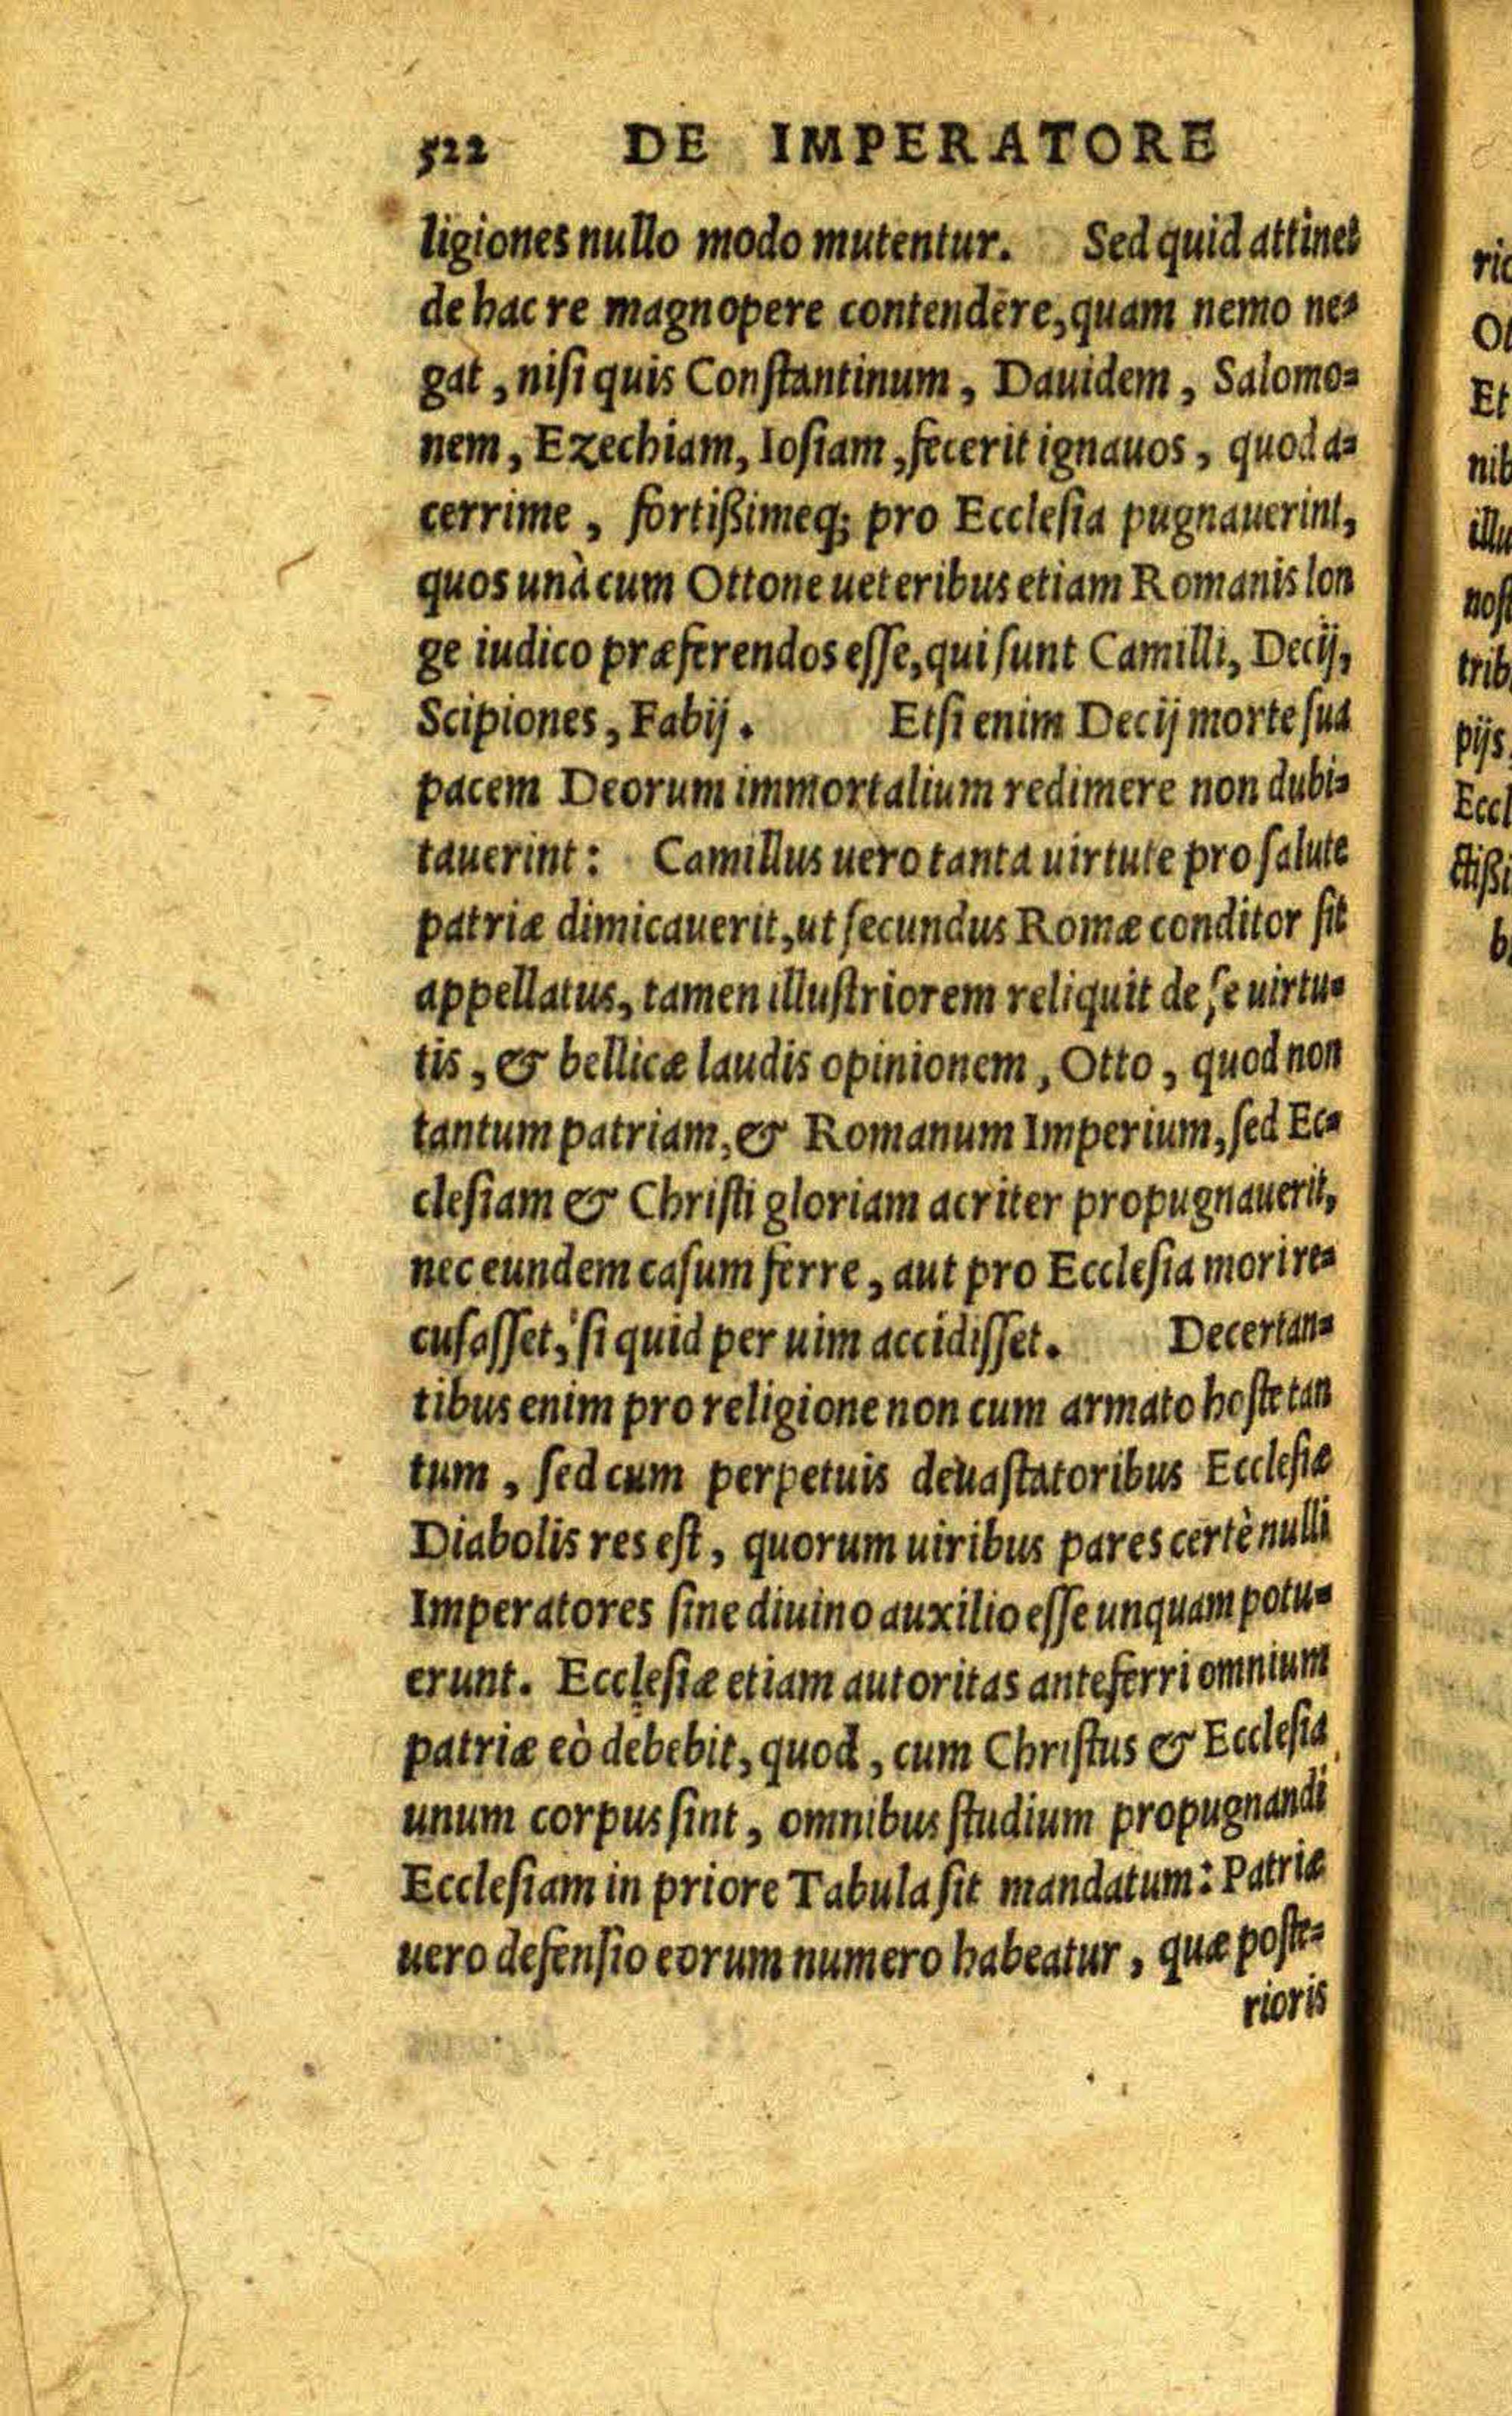 522 DE IMPERATORE
ligiones nullo modo mutentur. Sed quid attinet
de hac re magnopere contendere, quam nemo ne-
gat, niſi quis Conſtantinum, Dauidem, Salomo-
nem, Ezechiam, Ioſiam, fecerit ignauos, quod a-
cerrime, fortißimeq; pro Eccleſia pugnauerint,
quos unà cum Ottone ueteribus etiam Romanis lon
ge iudico præferendos eſſe, qui ſunt Camilli, Decij,
Scipiones, Fabij. Etſi enim Decij morte ſua
pacem Deorum immortalium redimere non dubi-
tauerint: Camillus uero tanta uirtute pro ſalute
patriæ dimicauerit, ut ſecundus Romæ conditor ſit
appellatus, tamen illuſtriorem reliquit de ſe uirtu-
tis, & bellicæ laudis opinionem, Otto, quod non
tantum patriam, & Romanum Imperium, ſed Ec-
cleſiam & Chriſti gloriam acriter propugnauerit,
nec eundem caſum ferre, aut pro Eccleſia mori re-
cuſaſſet, ſi quid per uim accidiſſet. Decertan-
tibus enim pro religione non cum armato hoſte tan
tum, ſed cum perpetuis deuaſtatoribus Eccleſiæ
Diabolis res eſt, quorum uiribus pares certè nulli
Imperatores ſine diuino auxilio eſſe unquam potu-
erunt. Eccleſiæ etiam autoritas anteferri omnium
patriæ eò debebit, quod, cum Chriſtus & Eccleſia
unum corpus ſint, omnibus ſtudium propugnandi
Eccleſiam in priore Tabula ſit mandatum: Patriæ
uero defenſio eorum numero habeatur, quæ poſte-
rioris